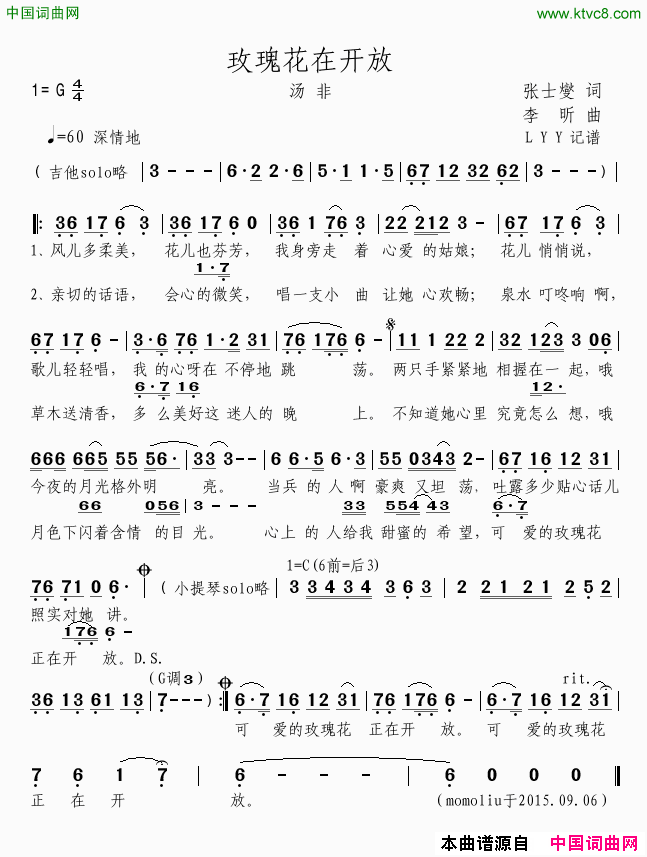 中国词曲网
www.ktvc8.com
玫瑰花在开放
1= G 4/4
汤 非
张士燮 词
李 昕 曲
♩=60 深情地
L Y Y 记谱
( 吉他solo略 | 3 - - - | 6·2 2·6 | 5·1 1·5 | 67 12 32 62 | 3 - - - )
36 17 6 3 | 36 17 6 0 | 36 1 76 3 | 22 212 3 - | 67 17 6 3
1、风儿多柔美， 花儿也芬芳， 我身旁走 着 心爱 的姑娘； 花儿 悄悄说，
1·7
2、亲切的话语， 会心的微笑， 唱一支小 曲 让她 心欢畅； 泉水 叮咚响 啊，
67 17 6 - | 3·6 76 1·2 31 | 76 176 6 - | 11 1 22 2 | 32 123 3 06
歌儿轻轻唱， 我 的心呀在 不停地 跳 荡。 两只手紧紧地 相握在一 起，哦
6·7 16 12·
草木送清香， 多 么美好这 迷人的 晚 上。 不知道她心里 究竟怎么 想，哦
666 665 55 56· | 33 3 - - | 6 6·5 6·3 | 55 0343 2 - | 67 16 12 31
今夜的月光格外明 亮。 当兵 的 人 啊 豪爽 又坦 荡， 吐露多少贴心话儿
66 056 3 33 554 43 6·7
月色下闪着含情 的目 光。 心上 的 人给我 甜蜜的 希 望，可 爱的玫瑰花
1=C(6前=后3)
76 71 0 6· | ( 小提琴solo略 | 3 3434 3 63 | 2 2 21 21 2 52
照实对她 讲。
176 6 -
正在开 放。D.S.
(G调3)
rit.
36 13 61 13 | 7 - - - ) :| 6·7 16 12 31 | 76 176 6 - | 6·7 16 12 31
可 爱的玫瑰花 正在开 放。 可 爱的玫瑰花
7 6 1 7 | 6 - - - | 6 0 0 0
正 在 开 放。 (momoliu于2015.09.06)
本曲谱源自 中国词曲网